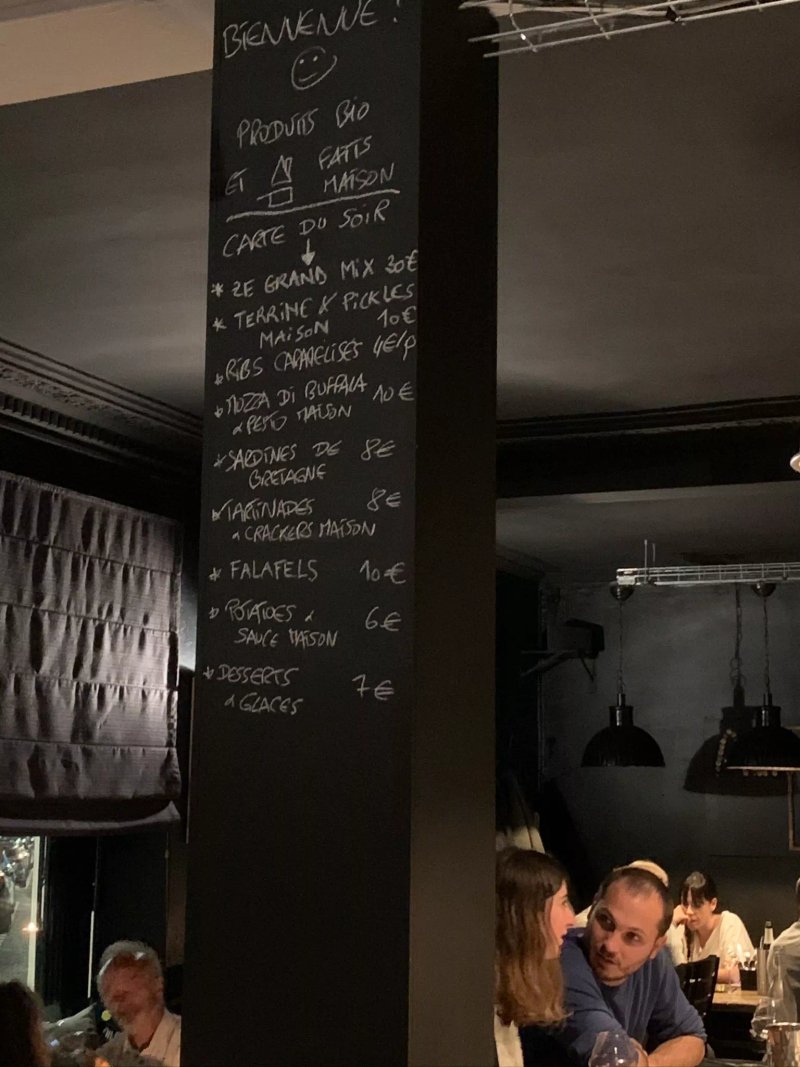 BIENVENUE !
PRODUITS BIO
ET FAITS
MAISON
CARTE DU SOIR
* ZE GRAND MIX 30€
* TERRINE & PICKLES
MAISON 10€
* RIBS CARAMELISES 4€/p
* MOZZA DI BUFFALA 10€
& PESTO MAISON
* SARDINES DE 8€
BRETAGNE
* TARTINADES 8€
& CRACKERS MAISON
* FALAFELS 10€
* POTATOES & 6€
SAUCE MAISON
* DESSERTS 7€
& GLACES